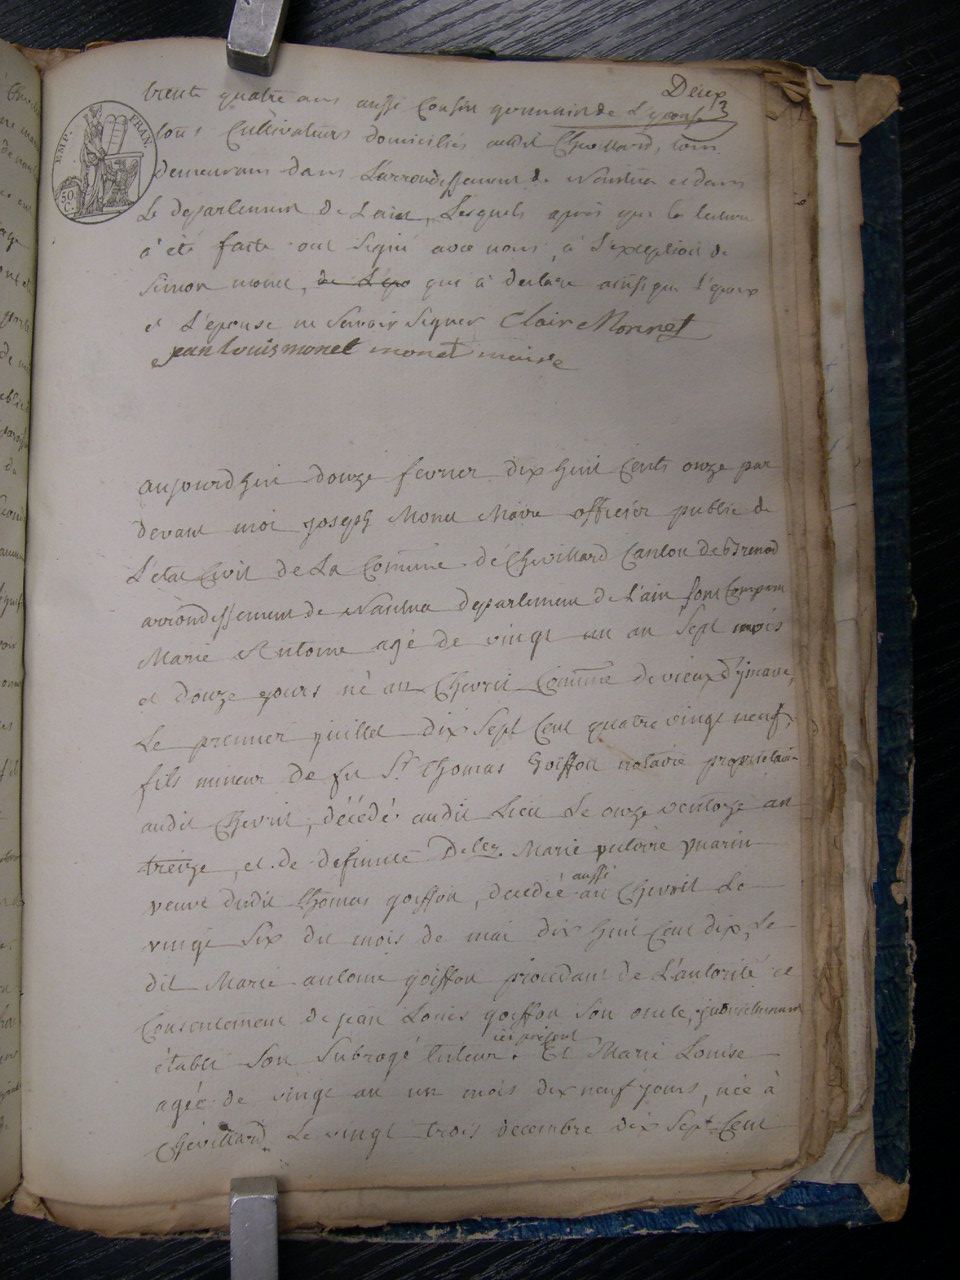 Deux
trente quatre ans aussi Cousin germain de L'epouse
EMP. FRAN.
50 C.
tous Cultivateurs domiciliés audit Chevillard, tous
demeurans dans L'arrondissement de Nantua et dans
Le departement de L'ain, Lesquels après que la lecture
a été faite ont signé avec nous, à L'exception de
Simon monet, qui à declaré ainsi que l'epoux
et L'epouse ne savoir signer Clair Monnet
jean louis monet monet maire
aujourdhui douze fevrier dix huit Cents onze par
devant moi joseph Monet Maire officier public de
L'état Civil de La Commune de Chevillard Canton de Brenod
arrondissement de Nantua departement de L'ain sont Comparu
Marie Antoine agé de vingt un an sept mois
et douze jours né au Chevril Commune de vieux d'izenave,
Le premier juillet dix sept Cent quatre vingt neuf,
fils mineur de feu Sr. thomas Goiffon notaire proprietaire
audit Chevril, décédé audit Lieu Le onze ventoze an
treize, et de defunte Delle. Marie
veuve dudit thomas goiffon, decedée aussi au Chevril Le
vingt six du mois de mai dix huit Cent dix, Le
dit Marie antoine goiffon procedant de L'autorité et
Consentement de jean Louis goiffon son oncle,
établi son Subrogé tuteur ici présent. Et Marie Louise
agée de vingt an un mois dix neuf jours, née à
Chevillard Le vingt trois decembre dix sept Cent